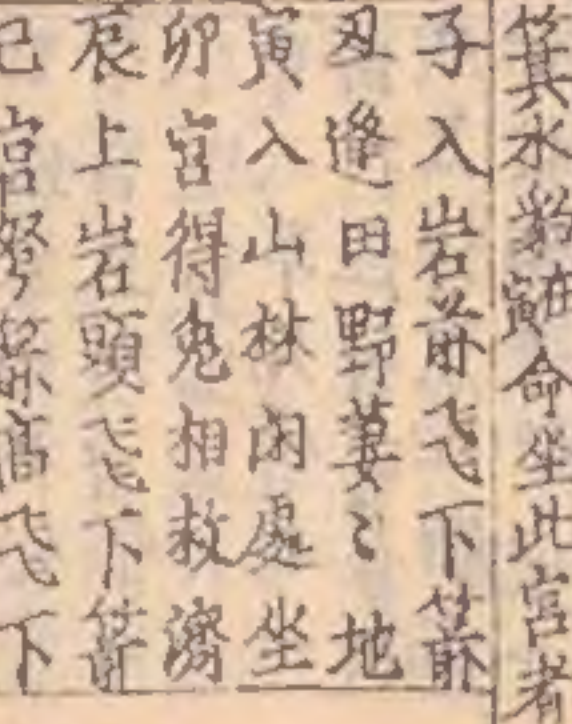 箕水豹在寅命坐此宮者
子入岩前飛下箭
丑逢田野萋〻地
寅入山林閑處坐
卯宮得兎相救濟
辰上岩頭飛下箭
巳宮弩高飛下